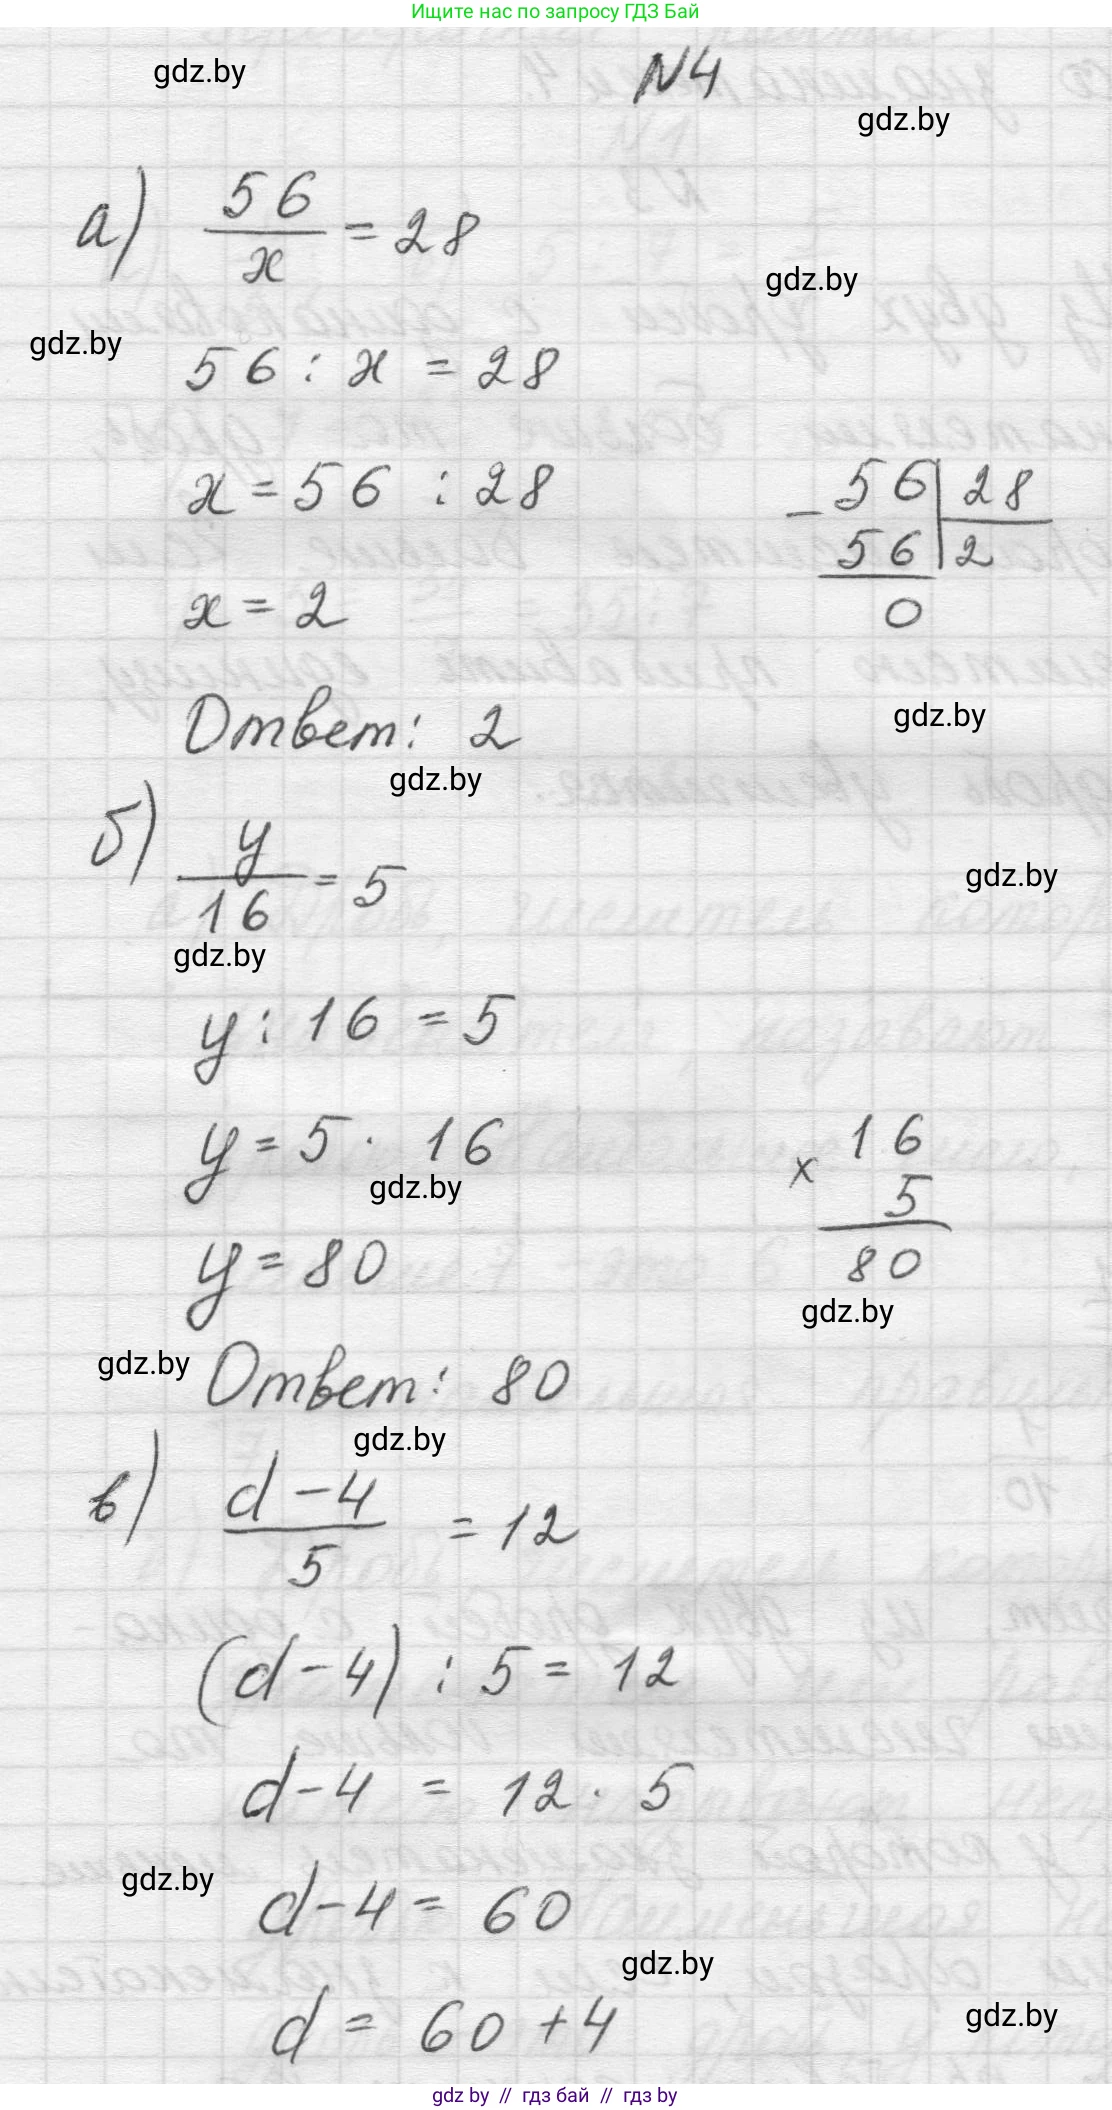 Ищите нас по запросу ГДЗ Бай
gdz.by
N4
gdz.by
а) 56/x = 28
gdz.by
gdz.by
56 : x = 28
x = 56 : 28
- 56 | 28
56 | 2
0
x = 2
Ответ: 2
gdz.by
gdz.by
б) y/16 = 5
gdz.by
gdz.by
y : 16 = 5
y = 5 · 16
gdz.by
x 16
5
80
gdz.by
y = 80
gdz.by
Ответ: 80
gdz.by
в) d - 4/5 = 12
(d - 4) : 5 = 12
d - 4 = 12 · 5
gdz.by
d - 4 = 60
gdz.by
gdz.by
d = 60 + 4
gdz by // гдз бай // гдз by